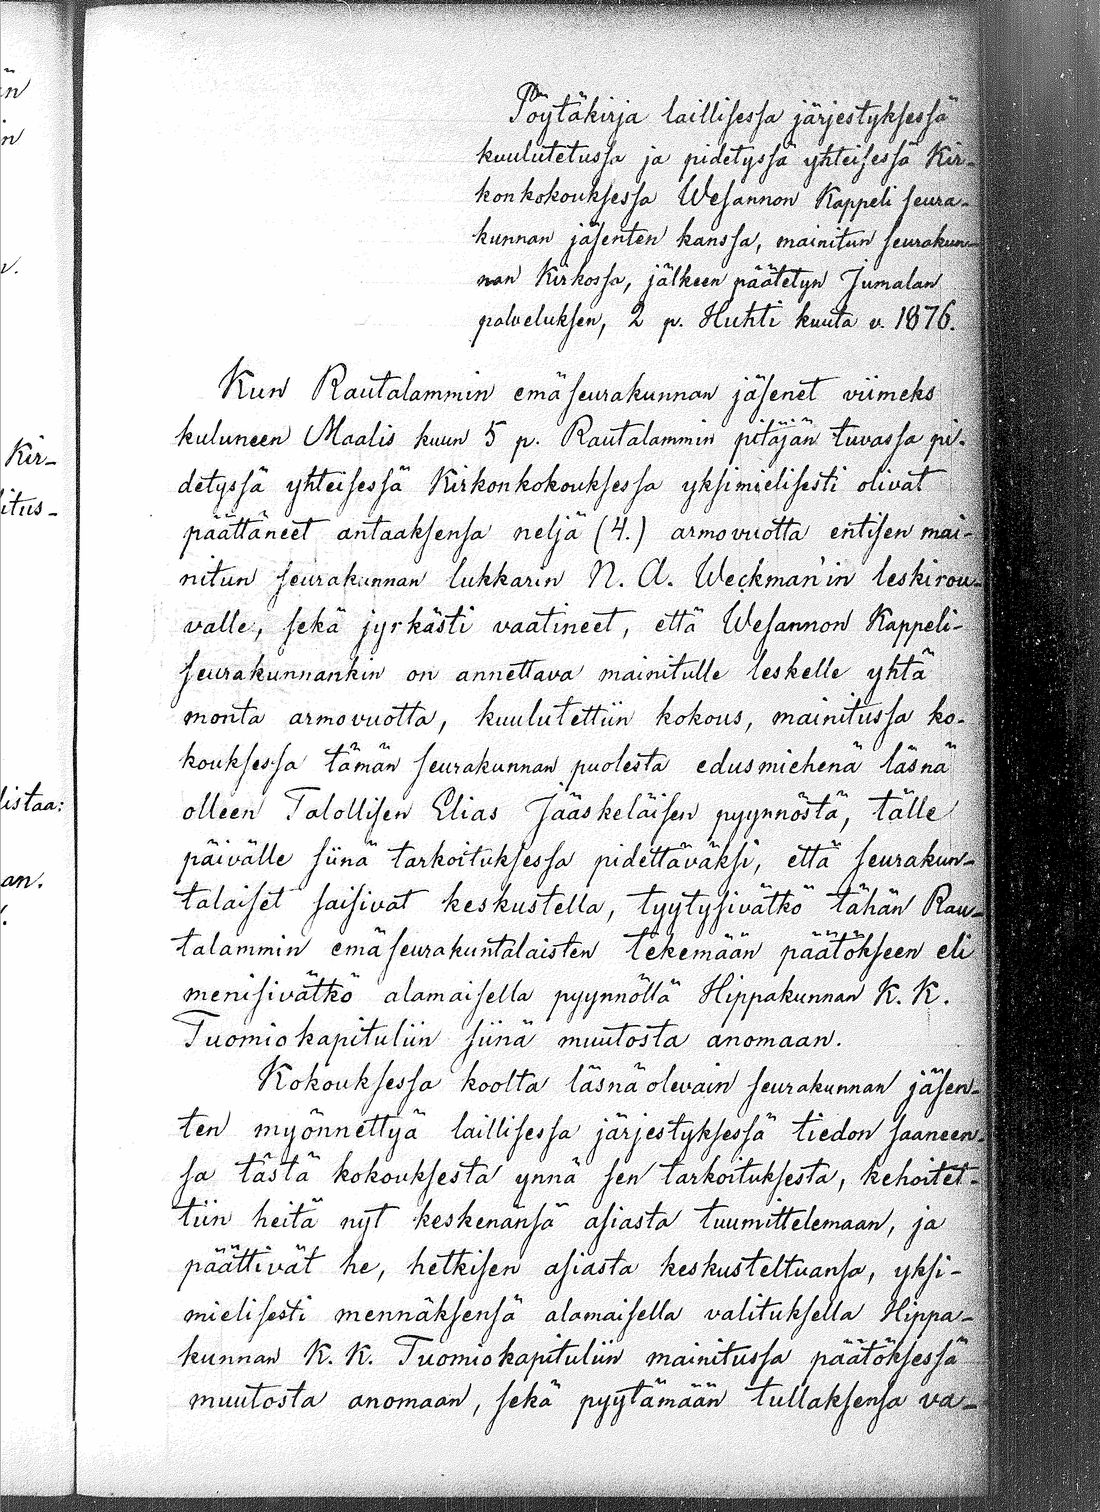 än
in
v.
Kir-
litus-
listaa:
an.
Pöytäkirja laillisessa järjestyksessä
kuulutetussa ja pidetyssä yhteisessä Kir-
konkokouksessa Wesannon Kappeli seura-
kunnan jäsenten kanssa, mainitun seurakun-
nan Kirkossa, jälkeen päätetyn Jumalan
palveluksen, 2 p. Huhti kuuta v. 1876.
Kun Rautalammin emäseurakunnan jäsenet viimeks
kuluneen Maalis kuun 5 p. Rautalammin pitäjän tuvassa pi-
detyssä yhteisessä Kirkonkokouksessa yksimielisesti olivat
päättäneet antaaksensa neljä (4.) armovuotta entisen mai-
nitun seurakunnan lukkarin N. A. Weckman'in leskirou-
valle, sekä jyrkästi vaatineet, että Wesannon Kappeli-
seurakunnankin on annettava mainitulle leskelle yhtä
monta armovuotta, kuulutettiin kokous, mainitussa ko-
kouksessa tämän seurakunnan puolesta edusmiehenä läsnä
olleen Talollisen Elias Jääskeläisen pyynnöstä, tälle
päivälle siinä tarkoituksessa pidettäväksi, että seurakun-
talaiset saisivat keskustella, tyytysivätkö tähän Rau-
talammin emäseurakuntalaisten tekemään päätökseen eli
menisivätkö alamaisella pyynnöllä Hippakunnan K. K.
Tuomiokapituliin siinä muutosta anomaan.
Kokouksessa koolta läsnäolevain seurakunnan jäsen-
ten myönnettyä laillisessa järjestyksessä tiedon saaneen-
sa tästä kokouksesta ynnä sen tarkoituksesta, kehoitet-
tiin heitä nyt keskenänsä asiasta tuumittelemaan, ja
päättivät he, hetkisen asiasta keskusteltuansa, yksi-
mielisesti mennäksensä alamaisella valituksella Hippa-
kunnan K. K. Tuomiokapituliin mainitussa päätöksessä
muutosta anomaan, sekä pyytämään tullaksensa va-